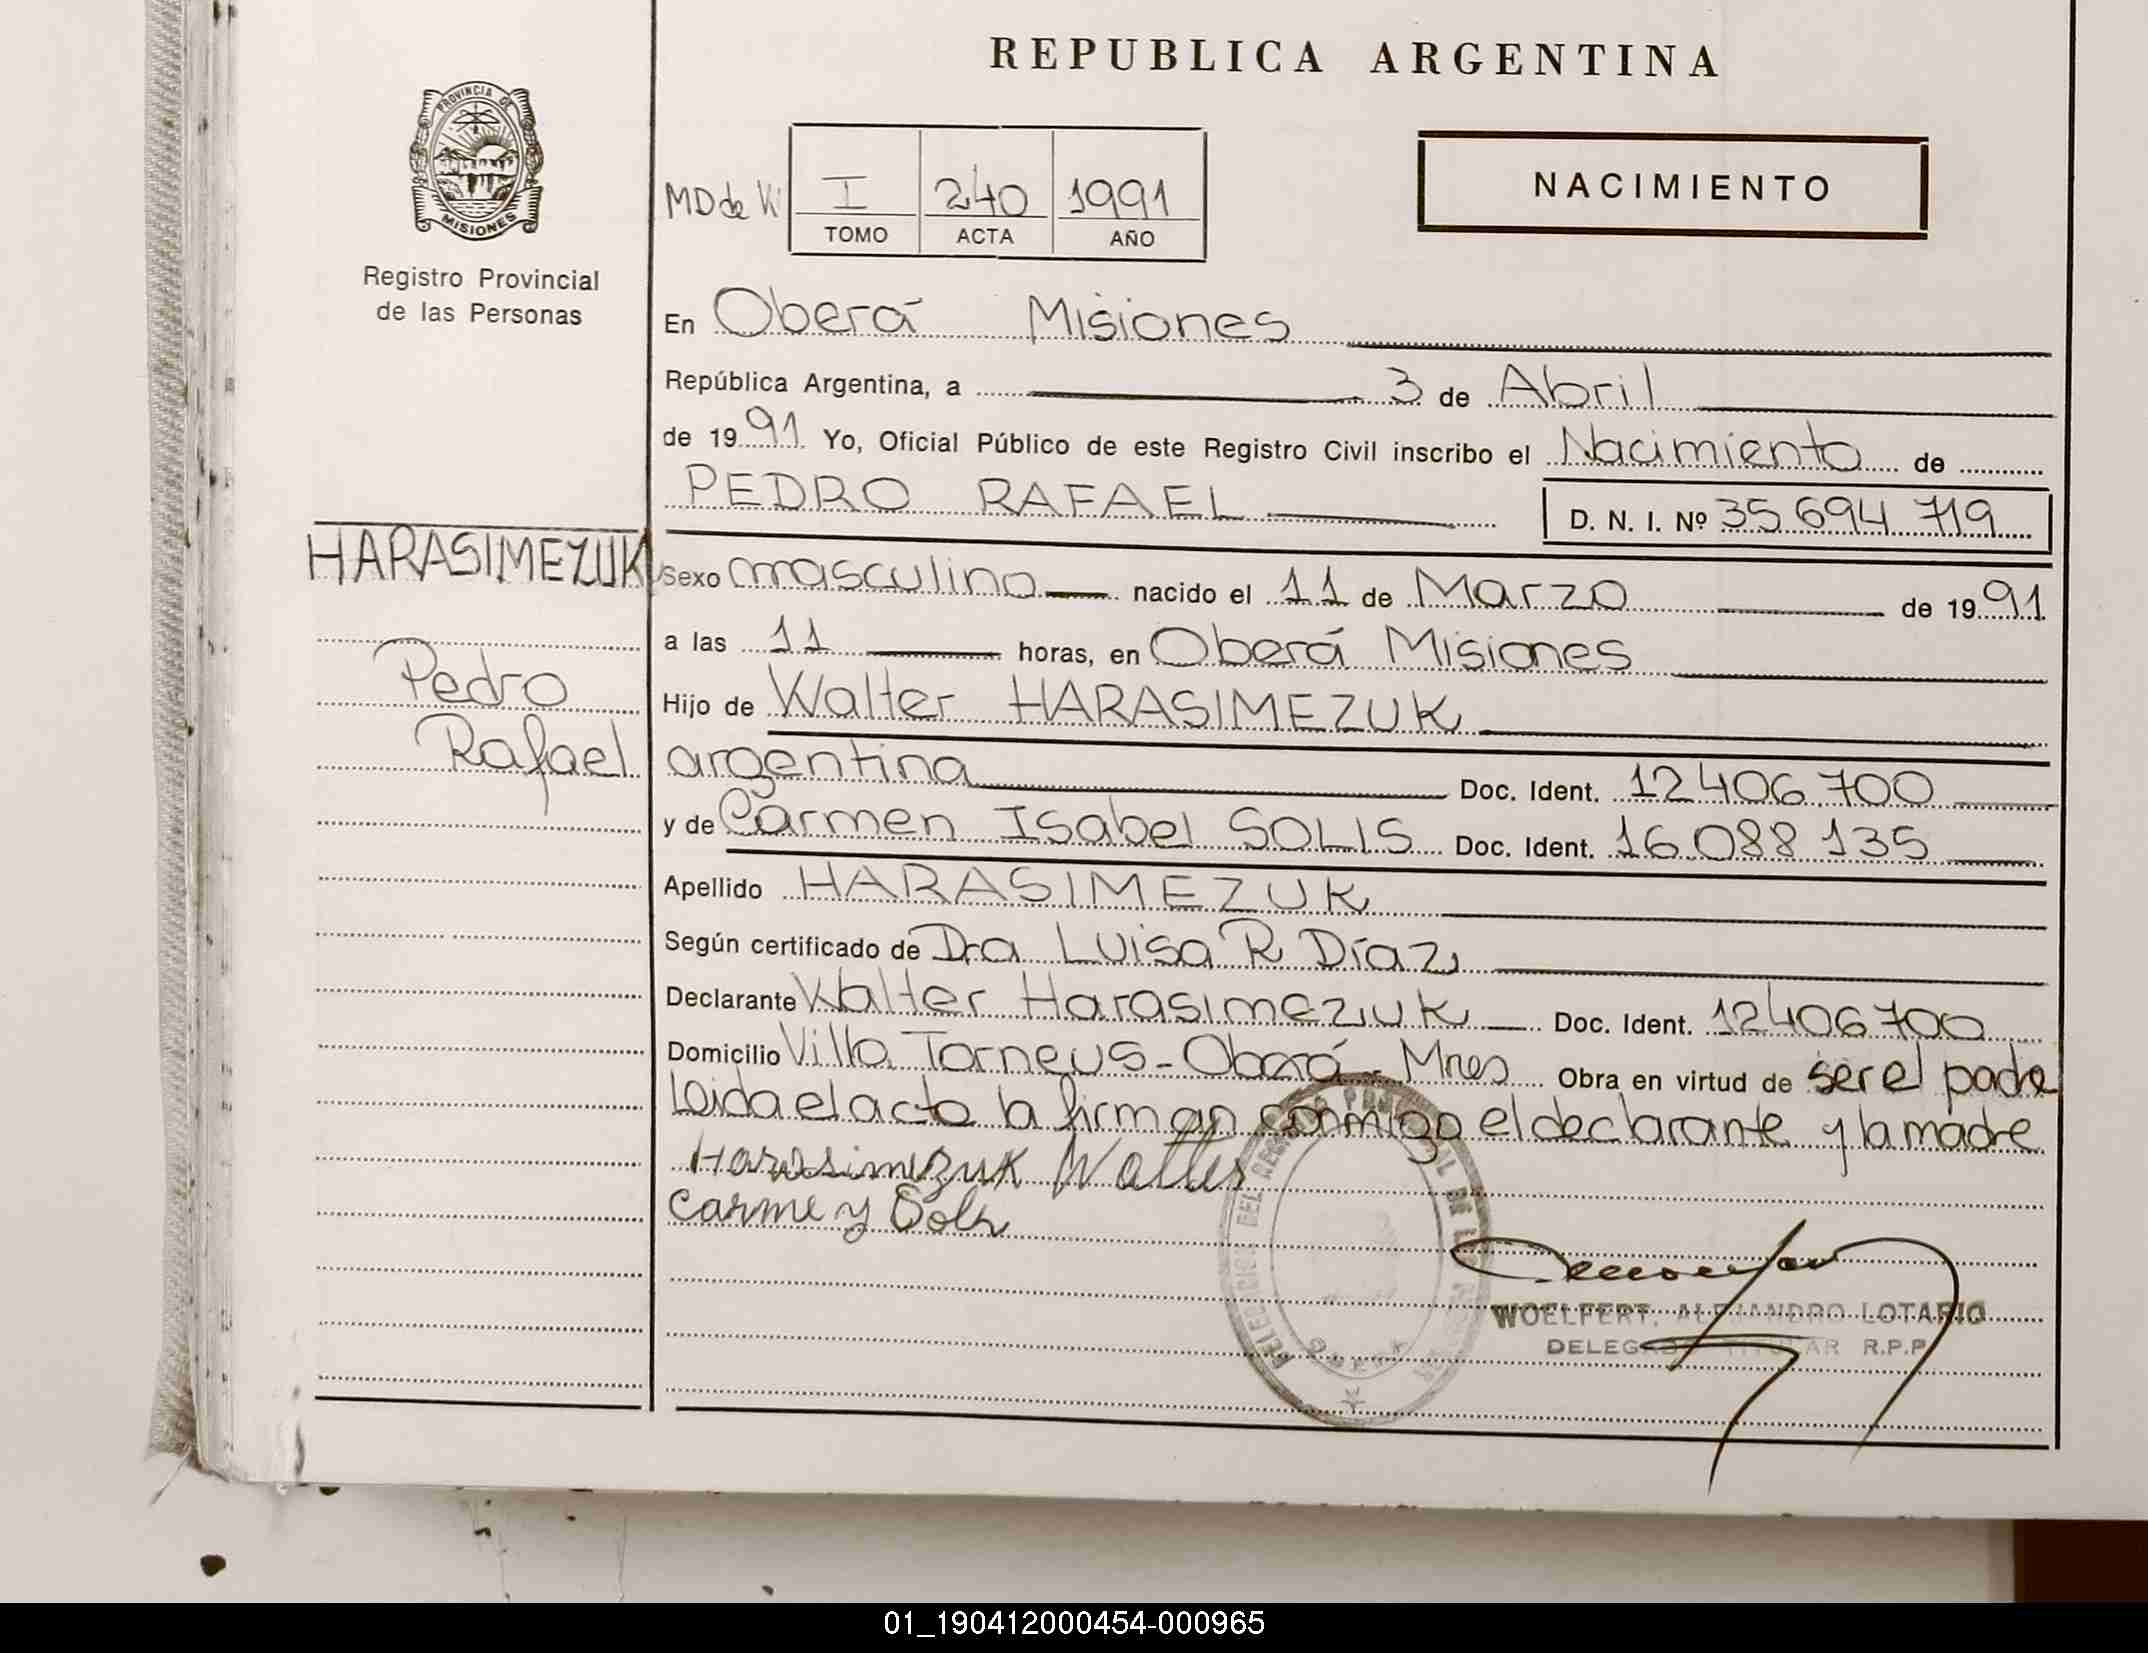 REPUBLICA ARGENTINA
PROVINCIA DE
MISIONES
Registro Provincial
de las Personas
MD de Vi
I 240 1991
TOMO ACTA AÑO
NACIMIENTO
En Oberá Misiones
República Argentina, a 3 de Abril
de 1991 Yo, Oficial Público de este Registro Civil inscribo el Nacimiento de
PEDRO RAFAEL D. N. I. Nº 35.694.719
HARASIMEZUK
Pedro
Rafael
Sexo masculino nacido el 11 de Marzo de 1991
a las 11 horas, en Oberá Misiones
Hijo de Walter HARASIMEZUK
argentina Doc. Ident. 12.406.700
y de Carmen Isabel SOLIS Doc. Ident. 16.088.135
Apellido HARASIMEZUK
Según certificado de Dra Luisa R. Díaz
Declarante Walter Harasimezuk Doc. Ident. 12.406.700
Domicilio Villa Torneus - Oberá - Mnes Obra en virtud de ser el padre
Leida el acta la firman conmigo el declarante y la madre
Harasimezuk Walter
WOELFERT, ALEJANDRO LOTARIO
DELEGADO TITULAR R.P.P
OBERA
01_190412000454-000965